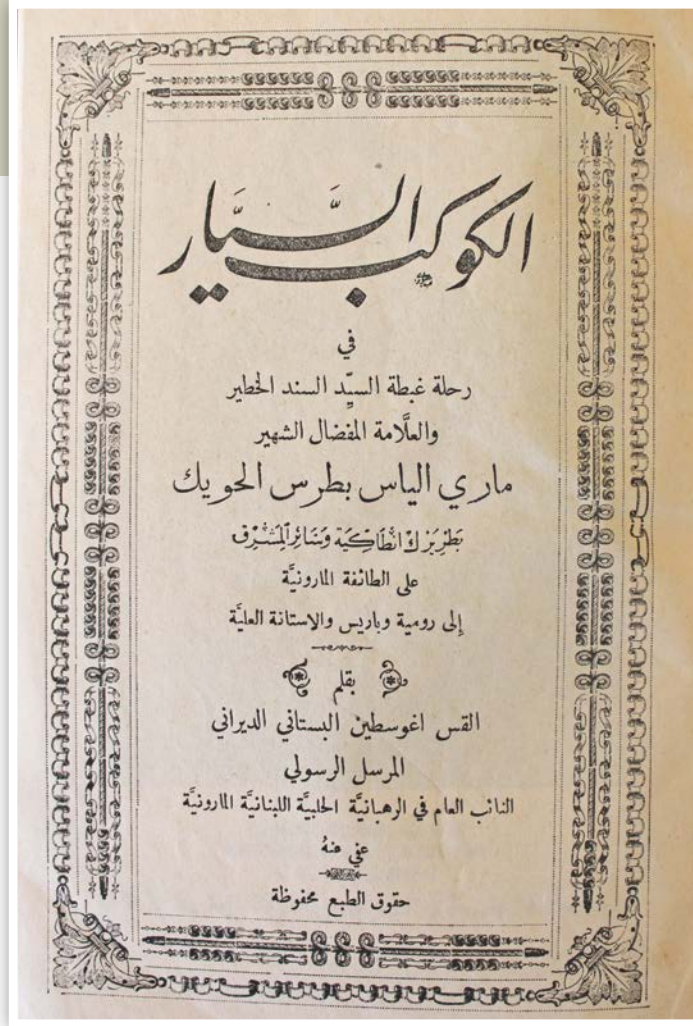 الكوكب السَّيَّار
في
رحلة غبطة السيِّد السند الخطير
والعلَّامة المفضال الشهير
ماري الياس بطرس الحويك
بطريرك انطاكية وسائر المشرق
على الطائفة المارونيَّة
إلى رومية وباريس والاستانة العليَّة
بقلم
القس اغوسطين البستاني الديراني
المرسل الرسولي
النائب العام في الرهبانيَّة الحلبيَّة اللبنانيَّة المارونيَّة
عفي عنهُ
حقوق الطبع محفوظة